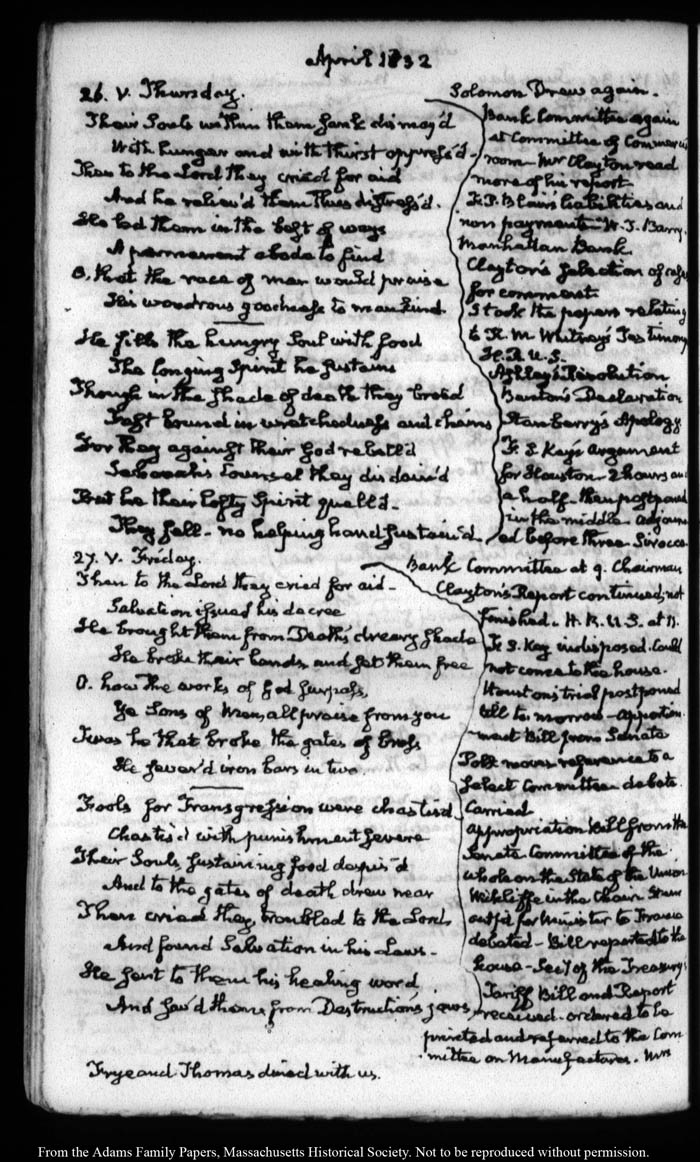 April 1832
26. V. Thursday.
Their Souls within them sank dismay'd
With hunger and with thirst oppress'd -
Then to the Lord they cried for aid
And he reliev'd them thus distress'd.
He led them in the best of ways
A permanent abode to find
O, that the race of man would praise
His wondrous goodness to mankind.
He fills the hungry Soul with food
The longing Spirit he sustains
Though in the shade of death they brood
Fast bound in wretchedness and chains
For they against their God rebell'd
Jehovah's Counsel they disdain'd
But he their lofty Spirit quell'd -
They fell - no helping hand sustain'd.
Solomon Drew again.
Bank Committee again
at Committee of Commerce
room - Mr Clayton read
more of his report
F. P. Blair's liabilities and
non payments - W. T. Barry.
Manhattan Bank
Clayton's Selection of
for comment
I took the papers relating
to R. M. Whitney's Testimony
H. R. U. S.
Ashley's Resolution
Bunton's Declaration
Stanberry's Apology
F. S. Key's argument
for Houston - 2 hours and
a half - then postponed
in the middle - adjourn
ed before three. Sirocco
27. V. Friday.
Then to the Lord they cried for aid -
Salvation issued his decree
He brought them from Death's dreary shade
He broke their bands, and set them free
O. how the works of God surpass,
Ye Sons of Men, all praise from you
Twas he that broke the gates of brass
He sever'd iron bars in two.
Fools for Transgression were chastised
Chastis'd with punishment severe
Their Souls sustaining food despis'd
And to the gates of death drew near
Then cried they, troubled to the Lord
And found Salvation in his Laws -
He sent to them his healing word
And sav'd them from Destruction's jaws.
Frye and Thomas dined with us.
Bank Committee at 9. Chairman
Clayton's Report continued, not
finished. H. R. U. S. at 11.
F. S. Key indisposed. Could
not come to the house.
Houston's trial postponed
till to morrow - apportion
ment Bill from Senate
Polk moves reference to a
Select Committee - debate.
Carried
appropriation Bill from the
Senate Committee of the
whole on the State of the Union
Wickliffe in the Chair
outfit for Minister to France
debated - Bill reported to the
house - Secy of the Treasury's
Tariff Bill and Report
received. ordered to be
printed and referred to the Com
mittee on Manufactures. Mrs
From the Adams Family Papers, Massachusetts Historical Society. Not to be reproduced without permission.